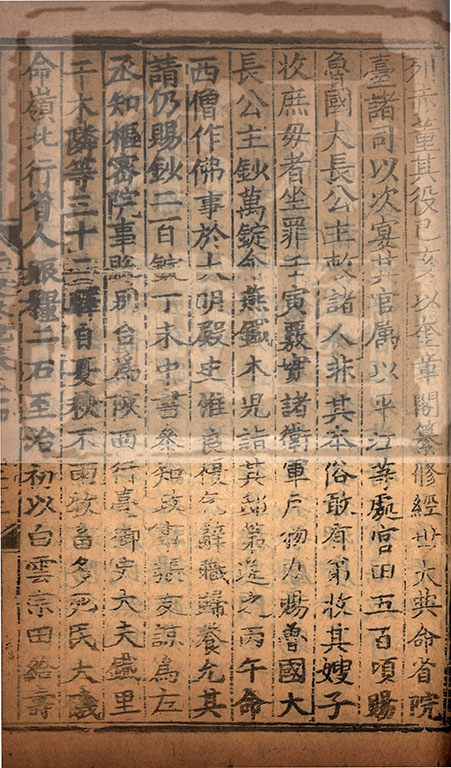 列赤董其役己亥以奎章閣纂修經世大典命省院
臺諸司以次宴其官属以平江等處官田五百頃賜
魯國大長公主敕諸人非其本俗敢有弟收其嫂子
收庶母者坐罪壬寅覈實諸衛軍戶物力賜魯國大
長公主鈔萬錠命燕鐵木兒詣其邸第送之丙午命
西僧作佛事於大明殿史惟良復乞辭職歸養允其
請仍賜鈔二百錠丁未中書參知政事張友諒爲左
丞知樞密院事別台爲陝西行臺御史大夫里
干木隣等三十二驛自夏秋不雨牧畜多死民大饑
命嶺北行省人賑糧二石至治初以白雲宗田給壽